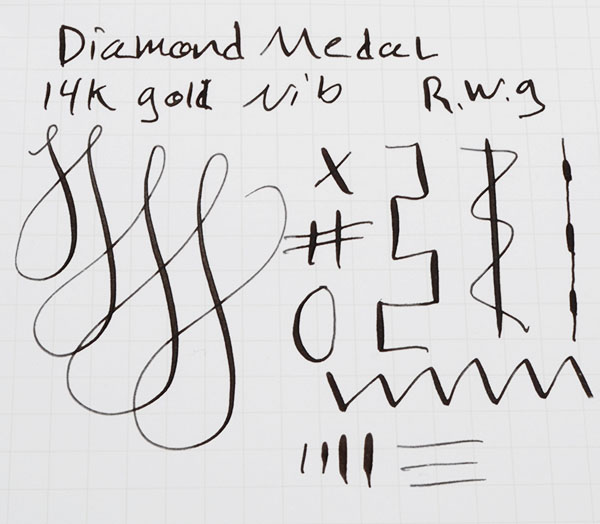 Diamond Medal
14K gold nib R.W.g
X
#
O